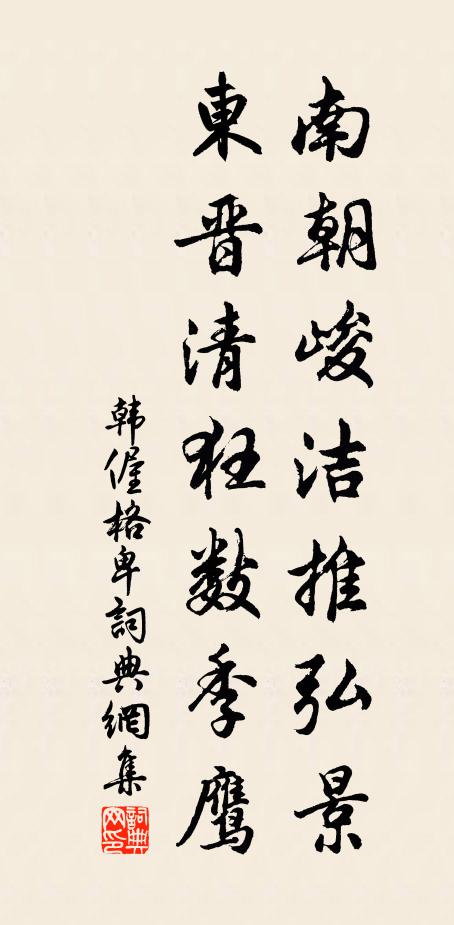 南朝峻洁推弘景
東晋清狂数季鹰
韩偓格卑詞典網集
詞典网印